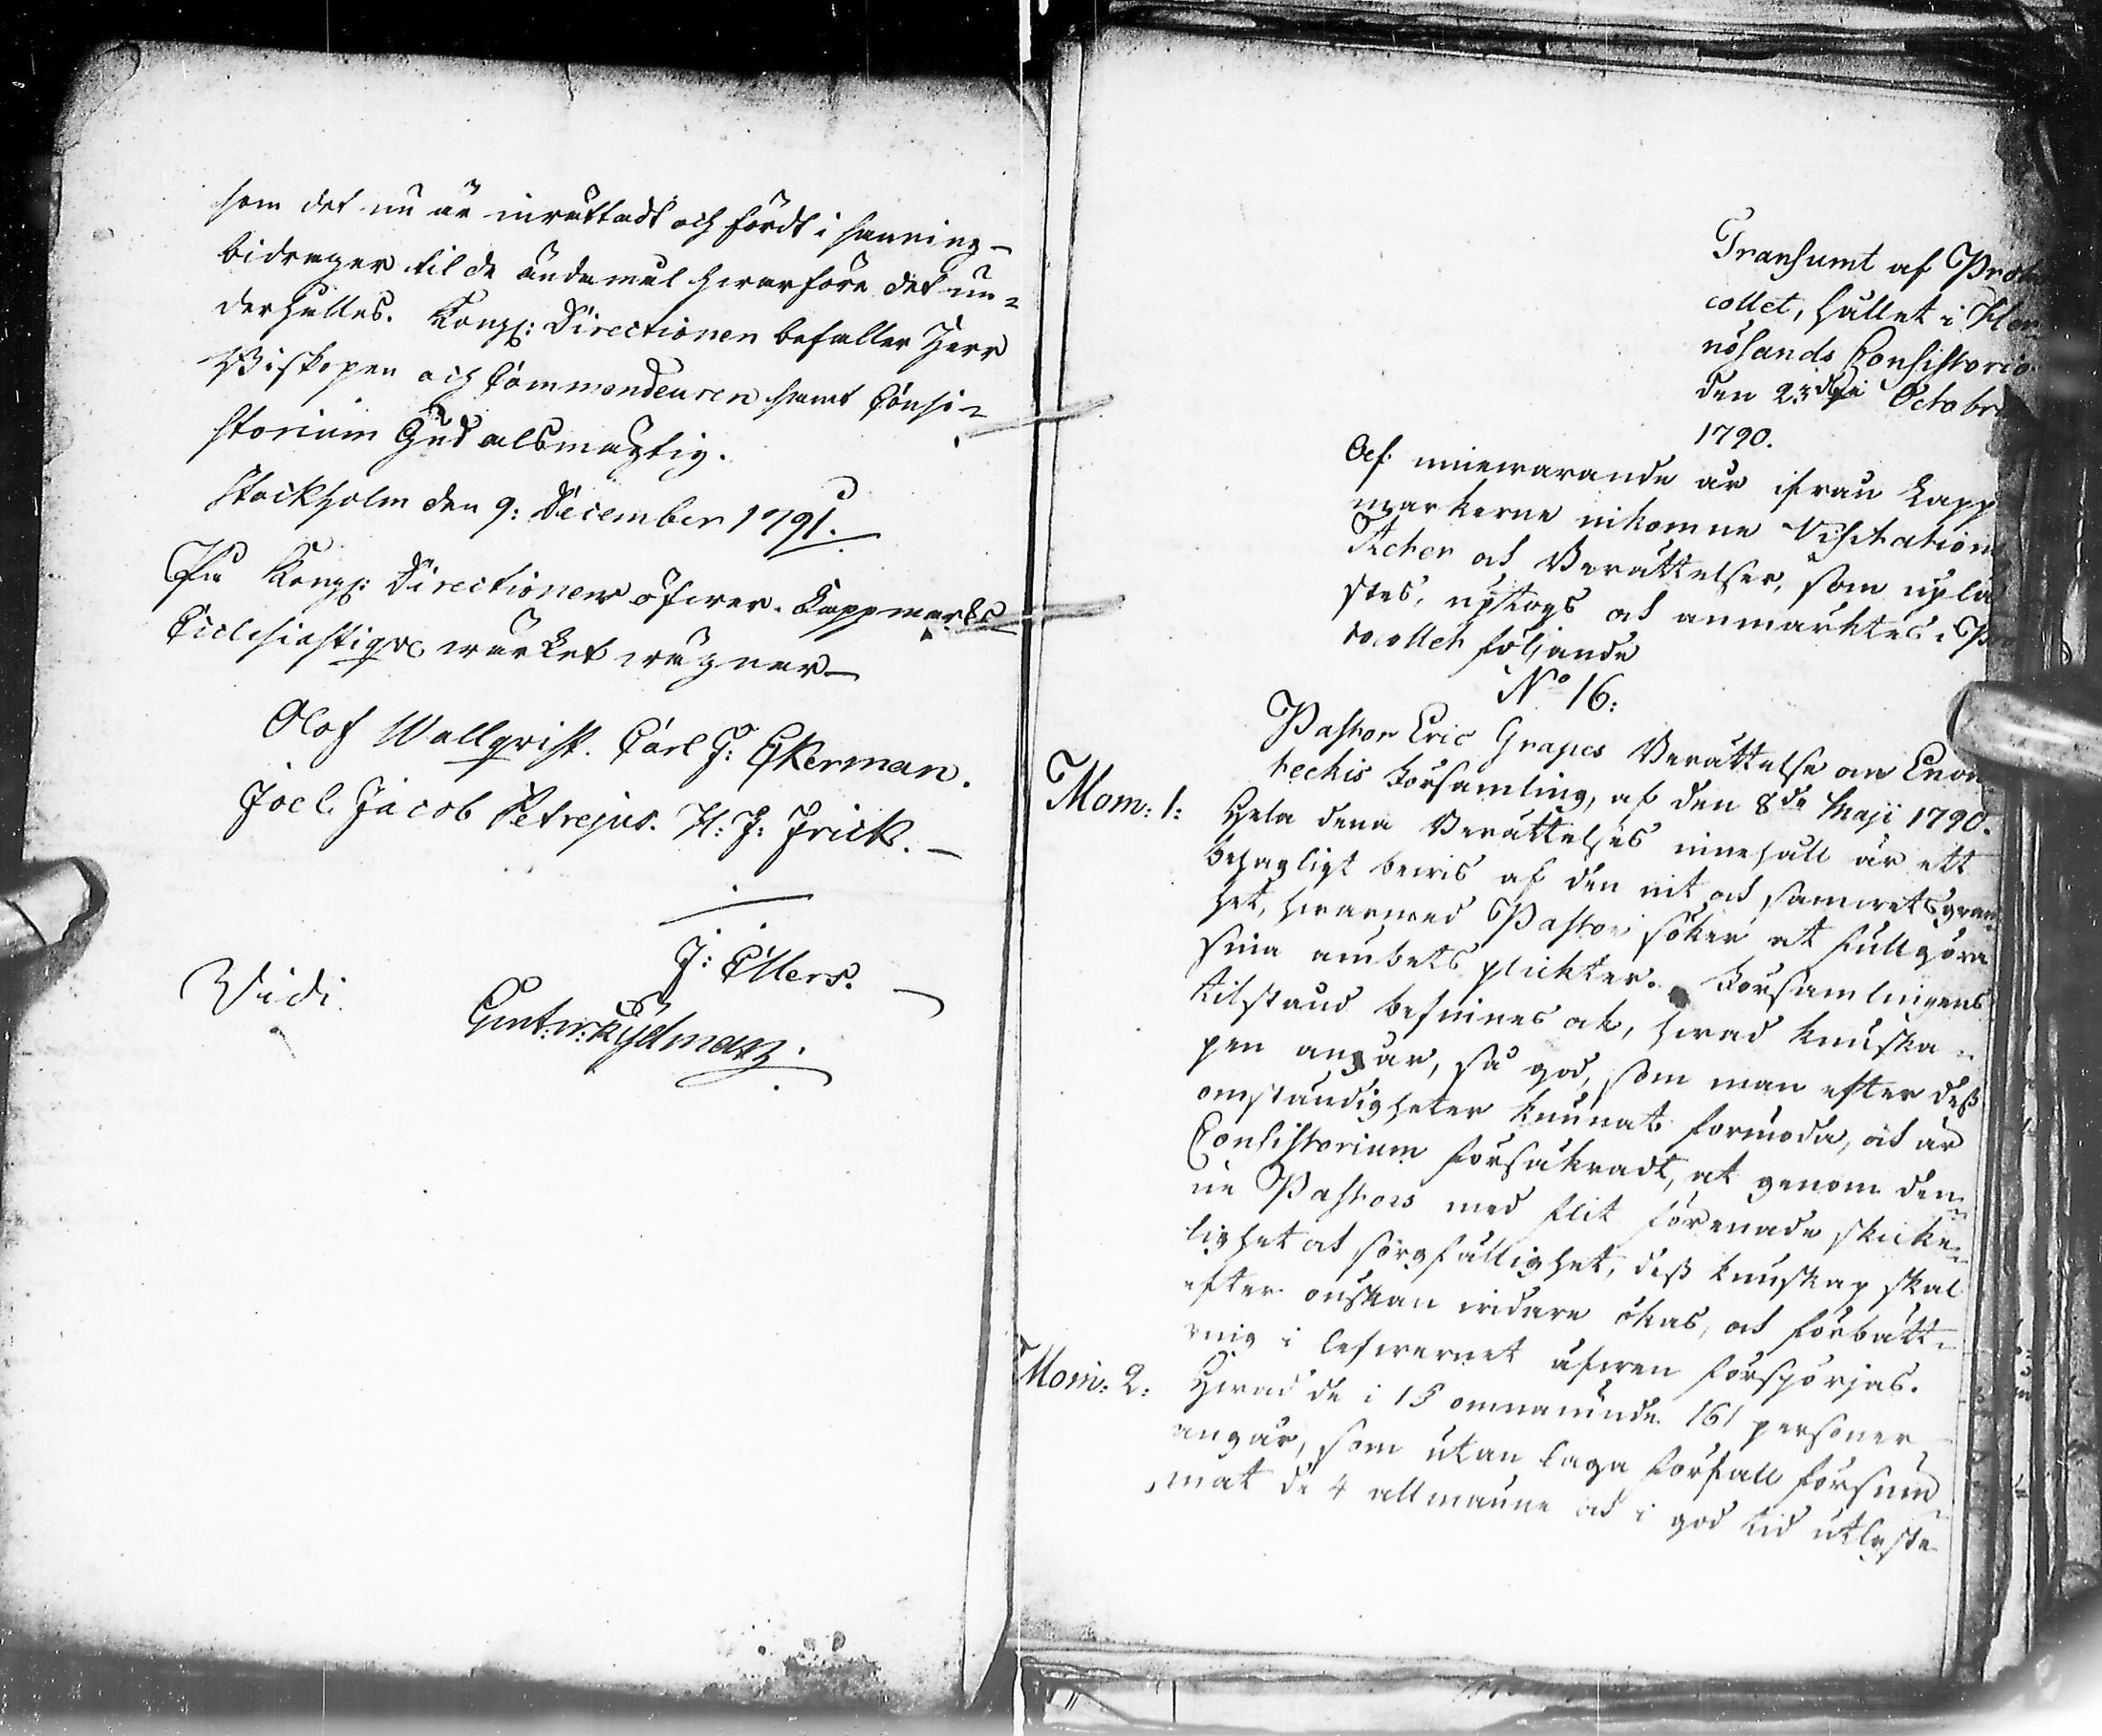 som det nu är inrättadt och fördt i sanning
bidrager til de ändamål hwarföre det un=
derhålles. Kongl: Directionen befaller Herr
Biskopen och Commendeuren samt Consi=
storium Gud alsmägtig.
Stockholm den 9: December 1791.
På Kongl: Directionens öfwer Lappmarks
Ecclesiastique wärket wägnar
Olof Wallqvist. Carl G: Ekerman.
Joel Jacob Petrejus. H: J: Frick.
J: Ellers.
Vidi
Transumt af Proto
collet, hållet i Her
nösands Consistorio
den 23dje Octobr
1790.
Af innewarande år ifrån Lapp
markerne inkomne Visitations
Acter och Berättelser, som uplä
stes, uptogs och anmärktes i Pro
tocollet följande
No 16:
Pastor Eric Grapes Berättelse om Enon
teckis Församling, af den 8de Maji 1790.
Mom: 1: Hela dena Berättelses innehåll är ett
behagligt bewis af den nit och samwetsgran
het, hwarmed Pastor söker at fullgöra
sina ämbets plikter. Församlingens
tilstånd befinnes ock, hwad kunska=
pen angår, så god, som man efter dess
omständigheter kunnat förmoda, och är
Consistorium försäkradt, at genom den=
ne Pastors med flit förenade skicke=
lighet och sorgfällighet, dess kunskap skal
efter önskan widare ökas, och förbätt=
ring i lefwernet äfwen förspörjas.
Mom: 2: Hwad de i 15 omnämnde 161 personer
angår, som utan laga förfall försum
mat de 4 allmänne och i god tid utlyste